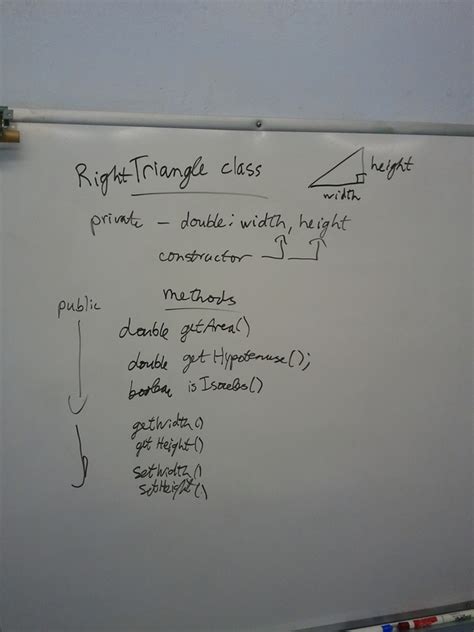 RightTriangle class
height
width
private - double: width, height
constructor
public
methods
double getArea()
double getHypotenuse();
boolean isIsoceles()
getWidth()
getHeight()
setWidth()
setHeight()